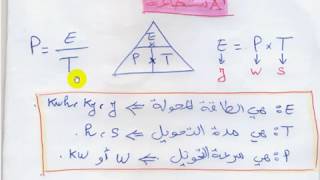 P = E / T
E
P × T
E = P × T
J W S
E: هي الطاقة المحولة ⇐ J ، KJ ، Kwh.
T: هي مدة التحويل ⇐ S ، h.
P: هي سرعة التحويل ⇐ W أو KW